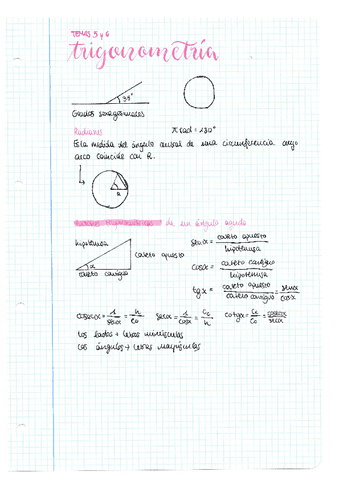 TEMAS 5 y 6
trigonometría
35°
Grados sexagesimales
Radianes π rad = 180°
Es la medida del ángulo central de una circunferencia cuyo
arco coincide con R.
R
Razones trigonométricas de un ángulo agudo
hipotenusa
cateto opuesto
α
cateto contiguo
senα = cateto opuesto / hipotenusa
cosα = cateto contiguo / hipotenusa
tgα = cateto opuesto / cateto contiguo = senα / cosα
cosecα = 1/senα = h/co secα = 1/cosα = cotgα =
Los lados → letras minúsculas
Los ángulos → letras mayúsculas